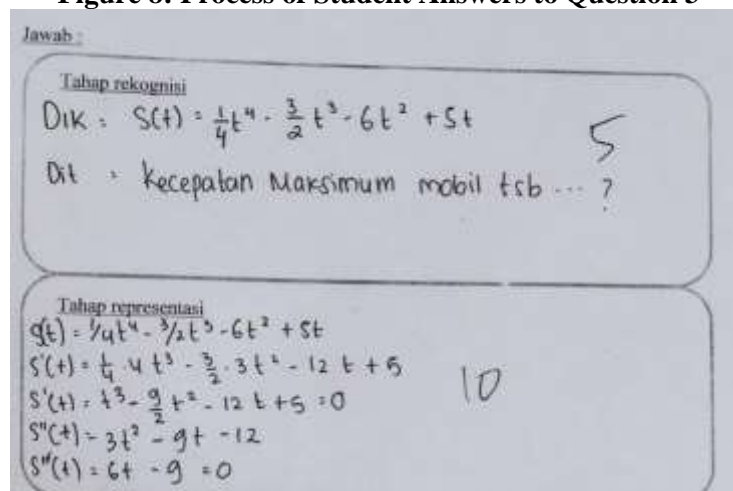 Figure 8. Process of Student Answers to Question 3
Jawab :
Tahap rekognisi
Dik : S(t) = 1/4 t⁴ - 3/2 t³ - 6t² + 5t
5
Dit : Kecepatan Maksimum mobil tsb ... ?
Tahap representasi
S(t) = 1/4 t⁴ - 3/2 t³ - 6t² + 5t
S'(t) = 1/4 . 4 t³ - 3/2 . 3 t² - 12 t + 5
10
S'(t) = t³ - 9/2 t² - 12 t + 5 = 0
S''(t) = 3t² - 9t - 12
S'''(t) = 6t - 9 = 0